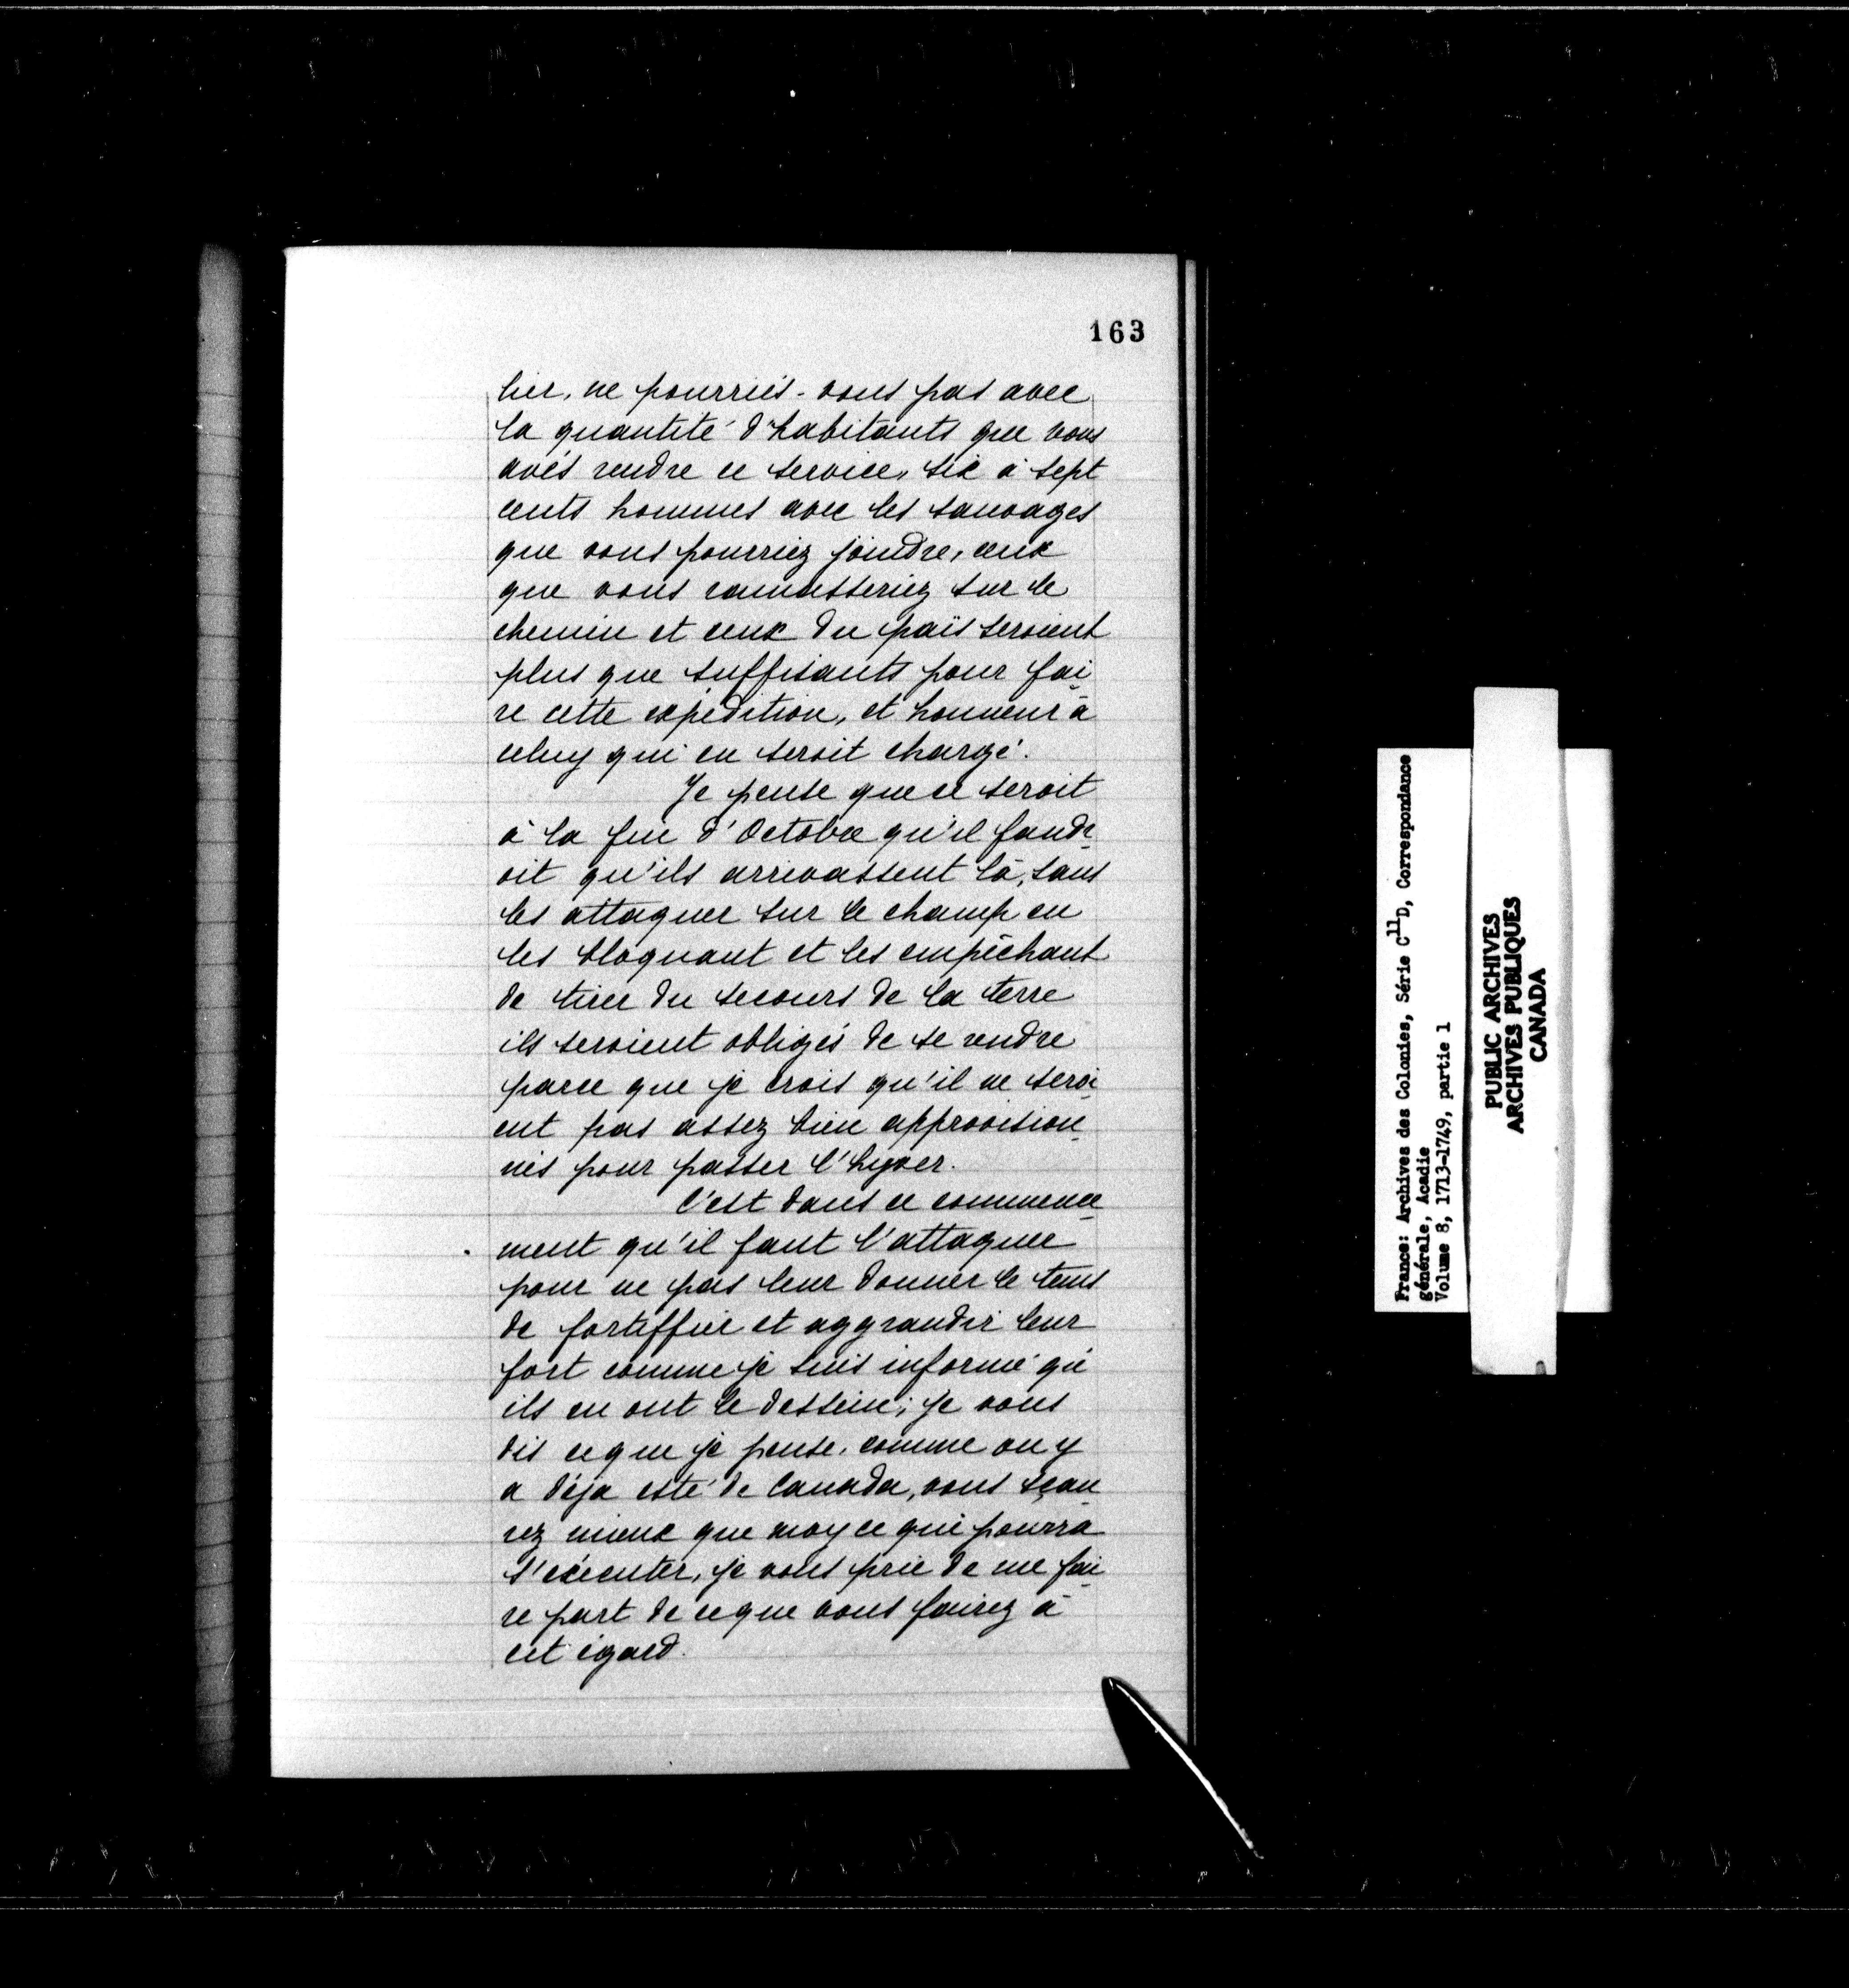 163
lier, ne pourriés-vous pas avec
la quantité d'habitants que vous
avés rendre ce service, six à sept
cents hommes avec les sauvages
que vous pourriez joindre, ceux
que vous ramasseriez sur le
chemin et ceux du païs seroient
plus que suffisants pour fai
re cette expédition, et honneur à
celuy qui en seroit chargé.
Je pense que ce seroit
à la fin d'Octobre qu'il faudr
oit qu'ils arrivassent là, sans
les attaquer sur le champ en
les bloquant et les empêchant
de tirer du secours de la terre
ils seroient obligés de se rendre
parce que je crois qu'il ne seroi
ent pas assez bien approvision
nés pour passer l'hyver.
C'est dans ce commence
ment qu'il faut l'attaquer
pour ne pas leur donner le tems
de fortiffier et aggrandir leur
fort comme je suis informé qu'
ils en ont le dessein; je vous
dis ce que je pense, comme on y
a déja esté de Canada, vous sçau
rez mieux que moy ce qui pourra
s'exécuter, je vous prie de me fai
re part de ce que vous fairez à
cet égard.
France: Archives des Colonies, Série C11D, Correspondance
générale, Acadie
Volume 8, 1713-1749, partie 1
PUBLIC ARCHIVES
ARCHIVES PUBLIQUES
CANADA